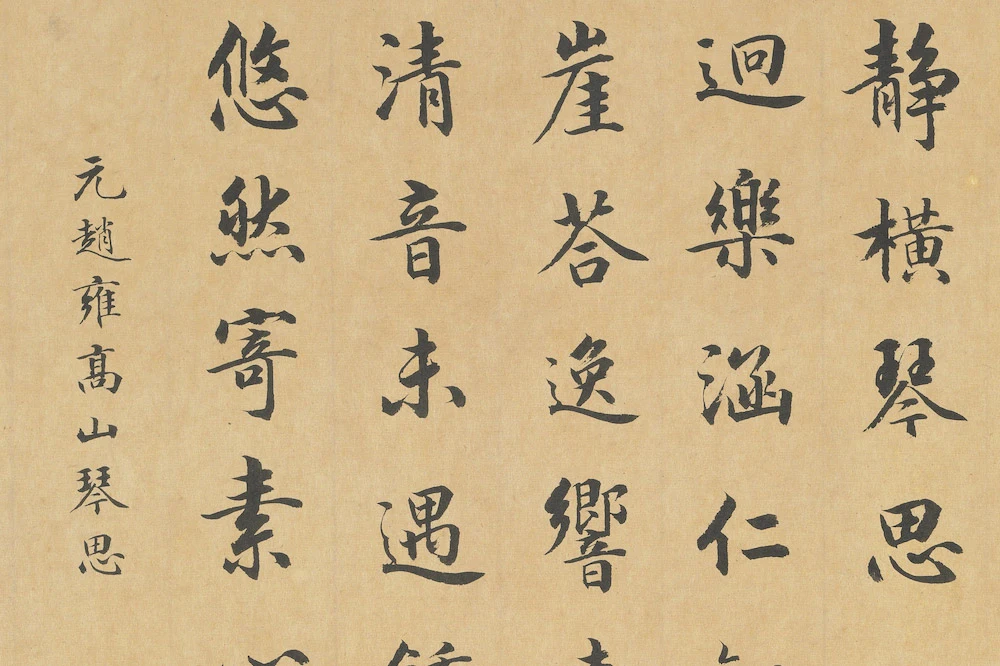 靜橫琴思
迴樂涵仁
崖荅逸響
清音未遇
悠然寄素
元趙雍高山琴思